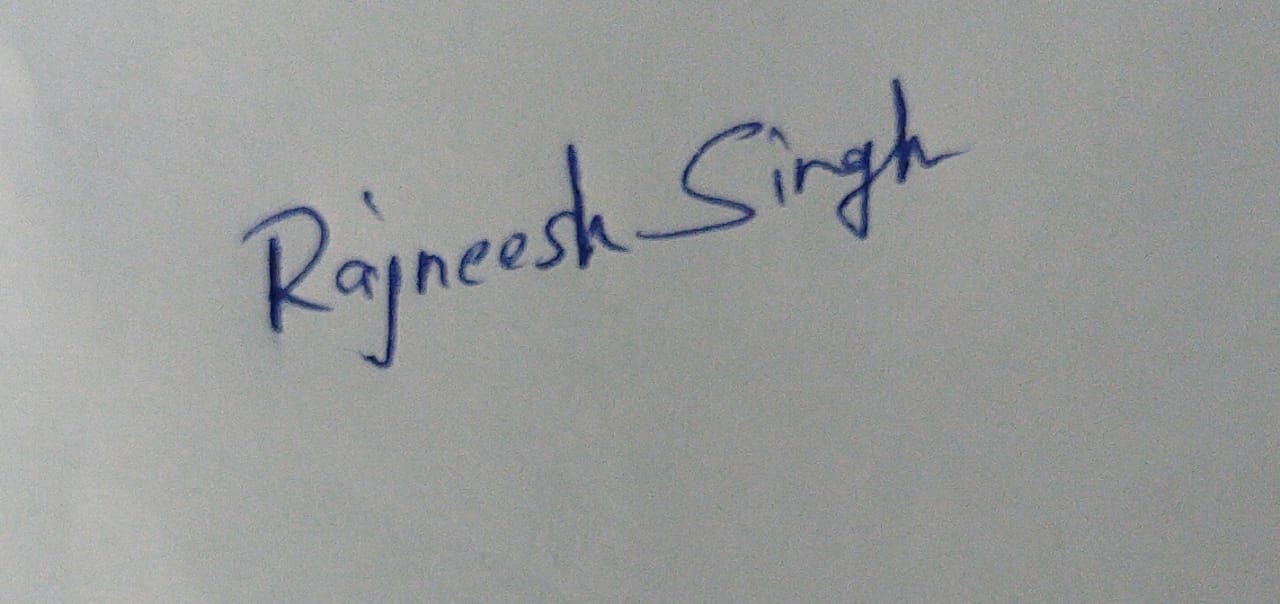 Rajneesh Singh